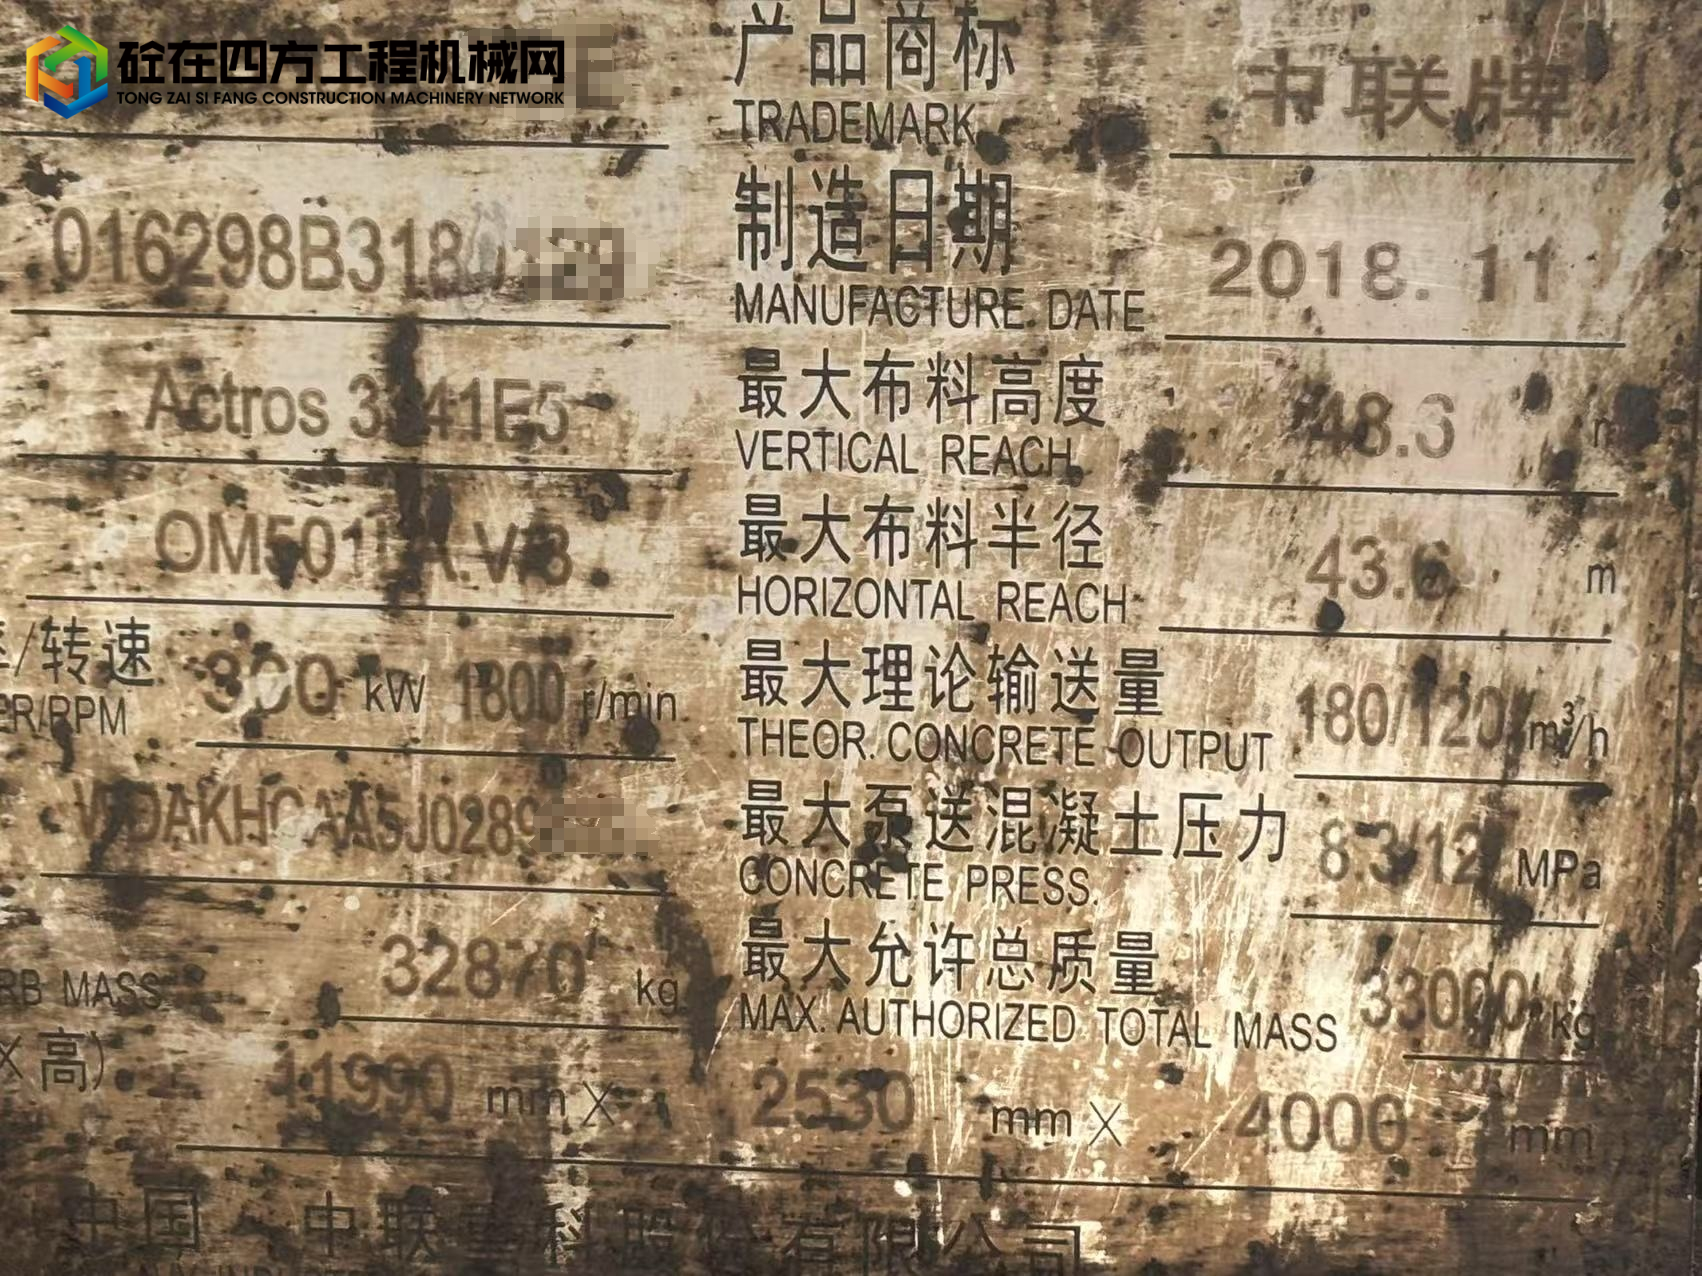 砼在四方工程机械网
TONG ZAI SI FANG CONSTRUCTION MACHINERY NETWORK
E
产品商标
TRADEMARK
中联牌
016298B318
制造日期
MANUFACTURE DATE
2018.11
Actros 3341E5
最大布料高度
VERTICAL REACH
48.3
OM501LA.V/3
最大布料半径
HORIZONTAL REACH
43.6 m
/转速
ER/RPM
300 kW 1800 r/min
最大理论输送量
THEOR. CONCRETE OUTPUT
180/120 m³/h
WDAKHCAA5J0289
最大泵送混凝土压力
CONCRETE PRESS.
8.3/12 MPa
RB MASS
32870 kg
最大允许总质量
MAX. AUTHORIZED TOTAL MASS
33000 kg
×高)
11990 mm × 2530 mm × 4000 mm
中国 中联重科股份有限公司